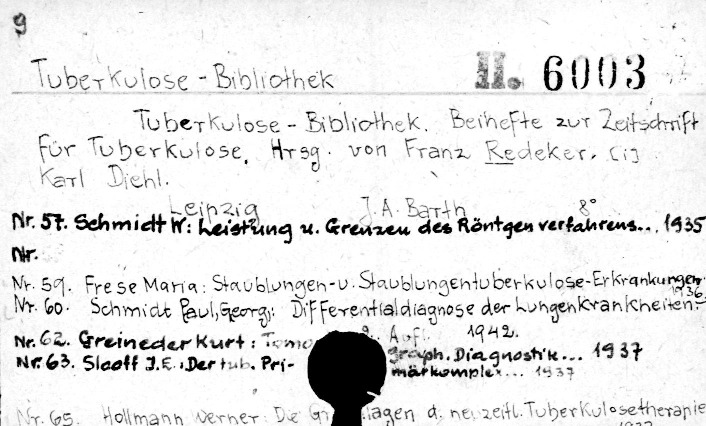 9
Tuberkulose - Bibliothek II. 6003
Tuberkulose - Bibliothek. Beihefte zur Zeitschrift
für Tuberkulose. Hrsg. von Franz Redeker. [i]
Karl Diehl.
Leipzig J. A. Barth 8°
Nr. 57. Schmidt W: Leistung u. Grenzen des Röntgenverfahrens... 1935
Nr.
Nr. 59. Frese Maria: Staublungen- u. Staublungentuberkulose-Erkrankungen 1936.
Nr. 60. Schmidt Paul, Georg: Differentialdiagnose der Lungenkrankheiten.-
2. Aufl. 1942.
Nr. 62. Greineder Kurt: Tomo graph. Diagnostik... 1937
Nr. 63. Slooff J.E.: Der tub. Pri- märkomplex... 1937
Nr. 65. Hollmann Werner: Die lagen d. neuzeitl. Tuberkulosetherapie